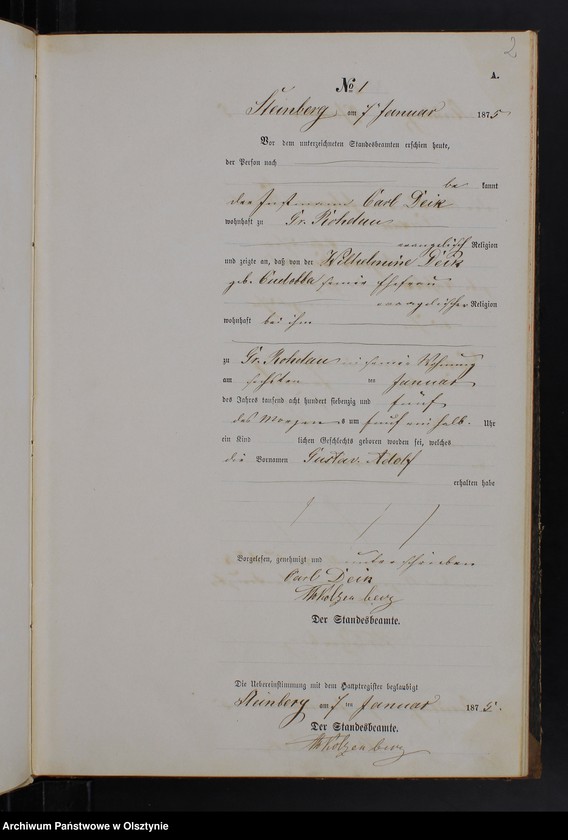 2
A.
№ 1
Steinberg am 7 Januar 1875
Vor dem unterzeichneten Standesbeamten erschien heute,
der Person nach
be kannt
der Instmann Carl Deik
wohnhaft zu Gr. Rohdau
evangelisch Religion
und zeigte an, daß von der Wilhelmine Deik
geb. seiner Ehefrau
evangelischer Religion
wohnhaft bei ihm
zu Gr. Rohdau in seiner Wohnung
am sechsten ten Januar
des Jahres tausend acht hundert siebenzig und fünf
des Morgen s um fünf einhalb Uhr
ein Kind lichen Geschlechts geboren worden sei, welches
die Vornamen Gustav Adolf
erhalten habe
Vorgelesen, genehmigt und unterschrieben
Carl Deik
Der Standesbeamte.
Die Uebereinstimmung mit dem Hauptregister beglaubigt
Steinberg am 7 ten Januar 1875.
Der Standesbeamte.
Archiwum Państwowe w Olsztynie